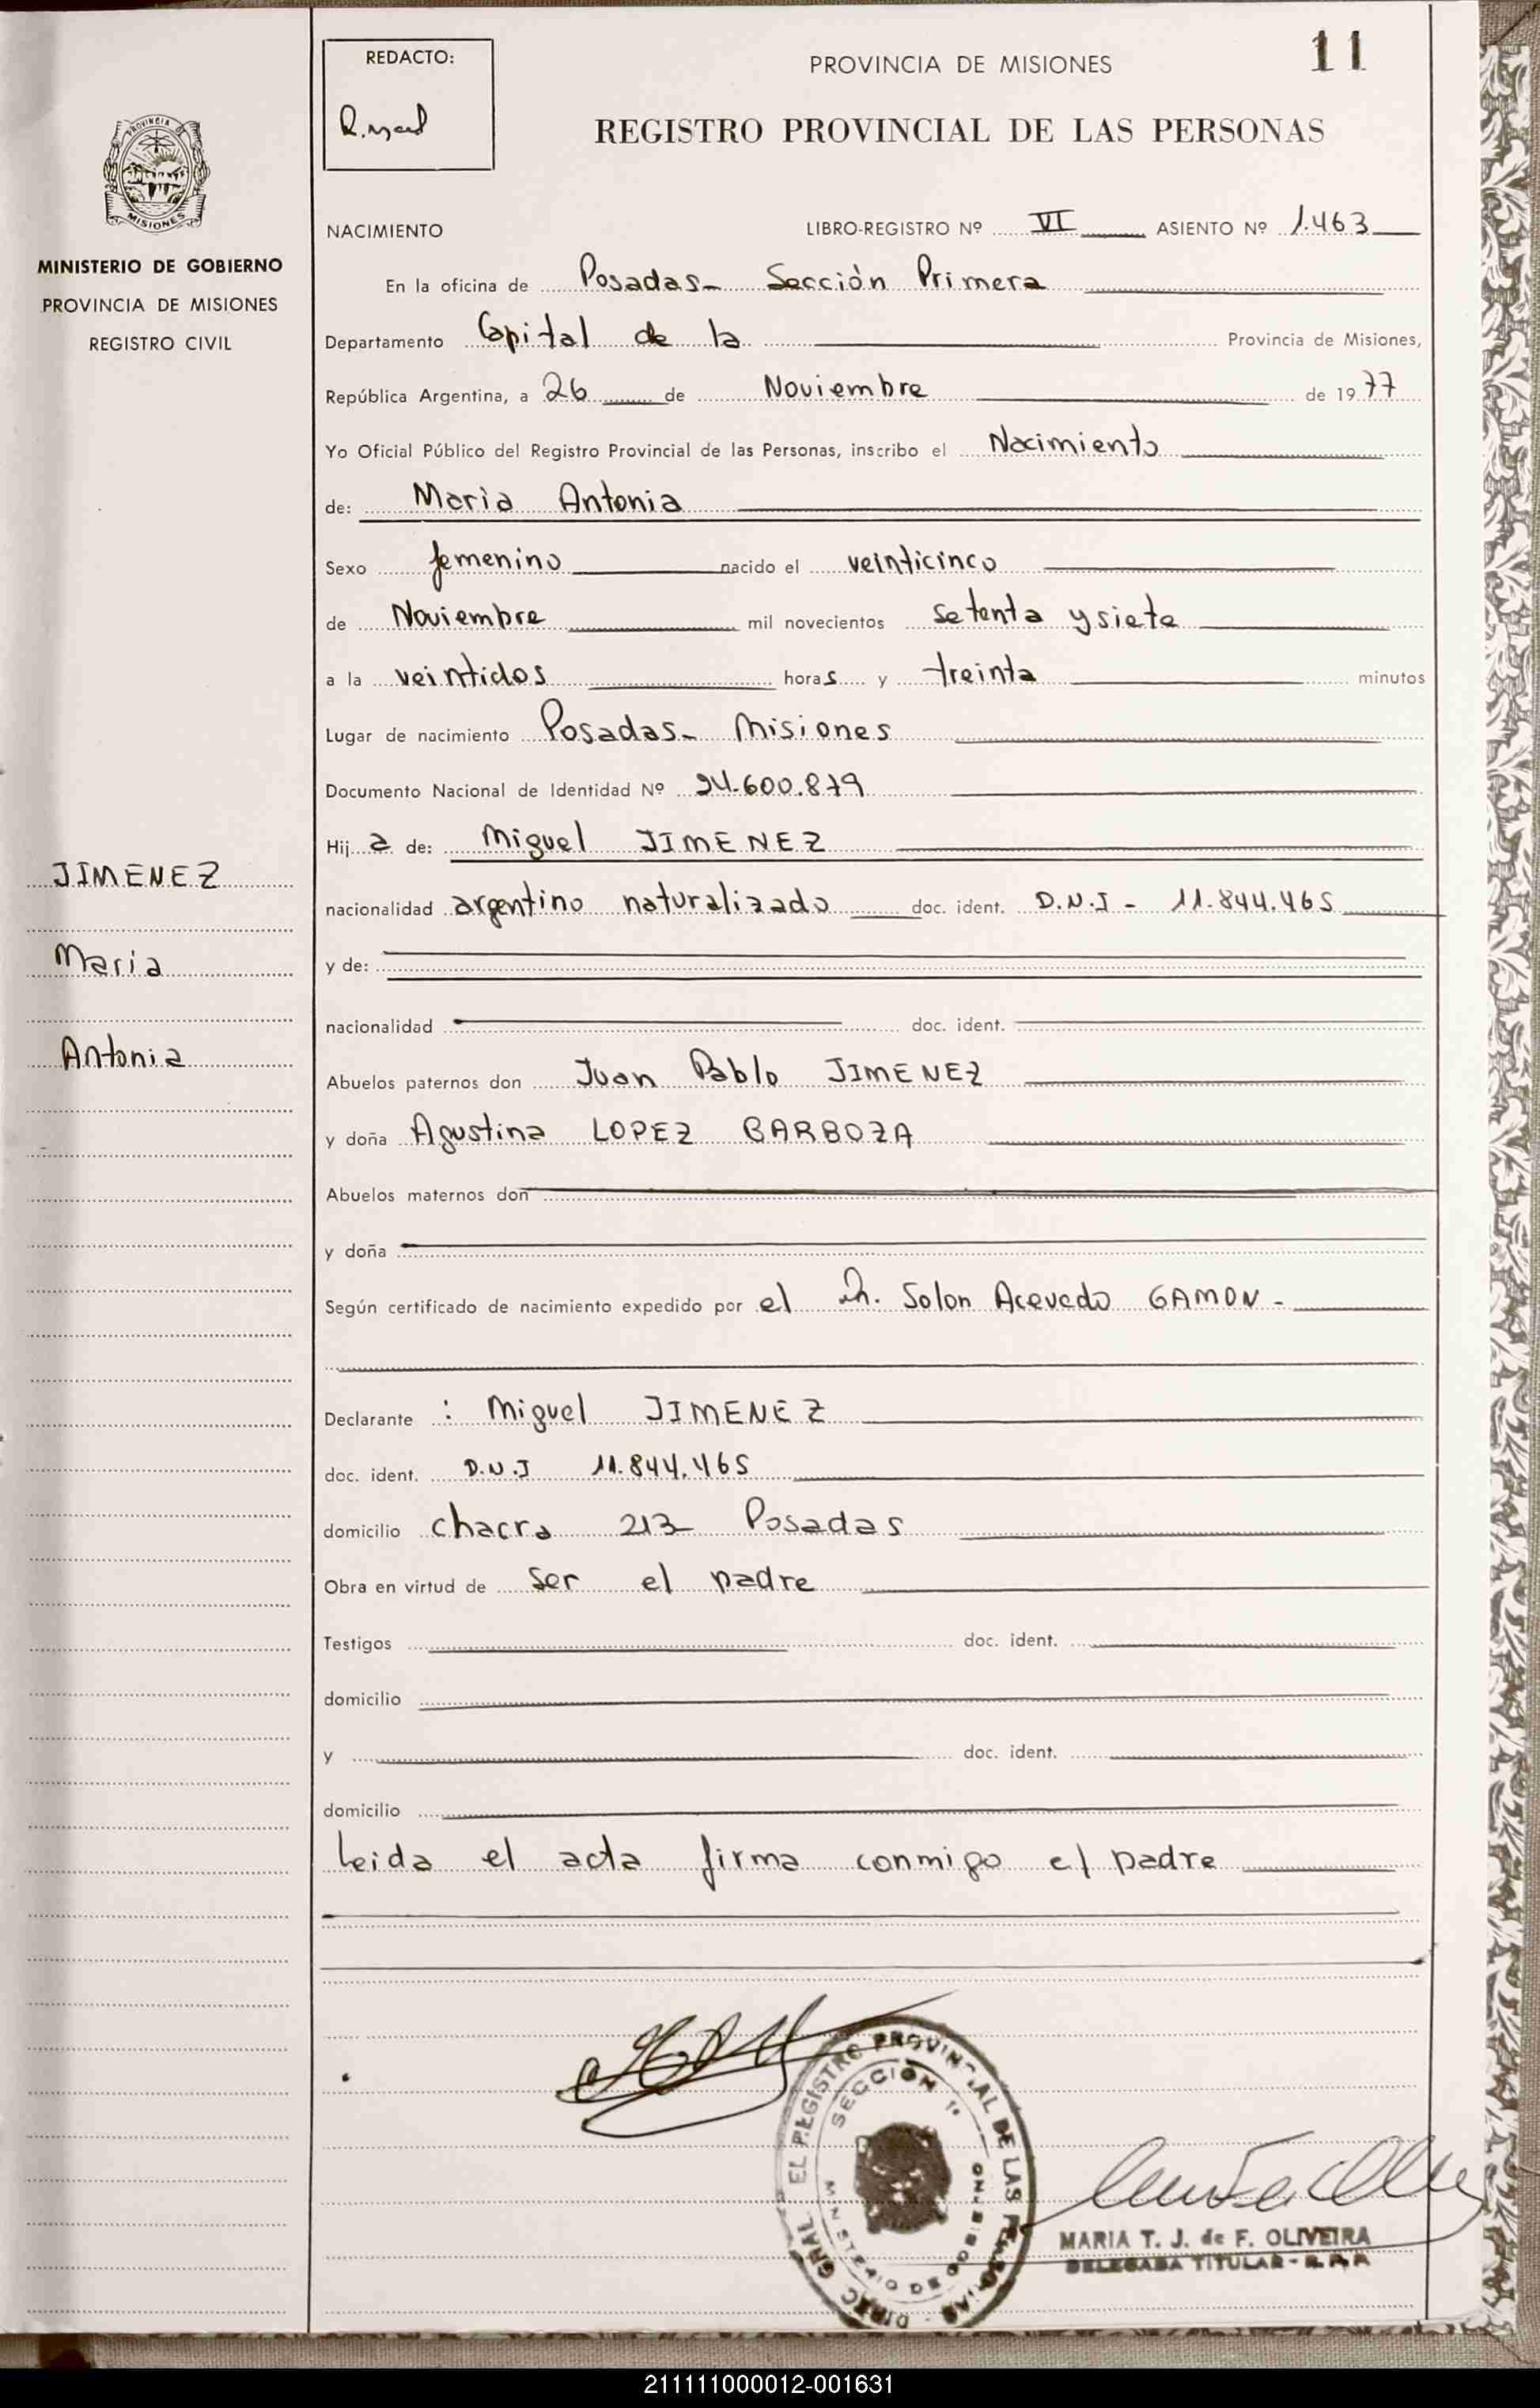 REDACTO:
PROVINCIA DE MISIONES
11
REGISTRO PROVINCIAL DE LAS PERSONAS
PROVINCIA DE
MISIONES
MINISTERIO DE GOBIERNO
PROVINCIA DE MISIONES
REGISTRO CIVIL
NACIMIENTO LIBRO-REGISTRO Nº VI ASIENTO Nº 1.463
En la oficina de Posadas- Sección Primera
Departamento Capital de la Provincia de Misiones,
República Argentina, a 26 de Noviembre de 1977
Yo Oficial Público del Registro Provincial de las Personas, inscribo el Nacimiento
de: Maria Antonia
Sexo femenino nacido el veinticinco
de Noviembre mil novecientos setenta y siete
a la veintidos horas y treinta minutos
Lugar de nacimiento Posadas- Misiones
Documento Nacional de Identidad Nº 24.600.879
Hij a de: Miguel JIMENEZ
JIMENEZ
nacionalidad argentino naturalizado doc. ident. D.N.I - 11.844.465
Maria
y de:
nacionalidad doc. ident.
Antonia
Abuelos paternos don Juan Pablo JIMENEZ
y doña Agustina LOPEZ BARBOZA
Abuelos maternos don
y doña
Según certificado de nacimiento expedido por el Dr. Solon Acevedo GAMON -
Declarante : Miguel JIMENEZ
doc. ident. D.N.I 11.844.465
domicilio chacra 213 Posadas
Obra en virtud de ser el padre
Testigos doc. ident.
domicilio
y doc. ident.
domicilio
Leida el acta firma conmigo el padre
DIREC. GRAL. EL REGISTRO PROVINCIAL DE LAS PERSONAS
SECCION 1ª
MINISTERIO DE GOBIERNO
MARIA T. J. de F. OLIVEIRA
DELEGADA TITULAR - R.P.P.
211111000012-001631